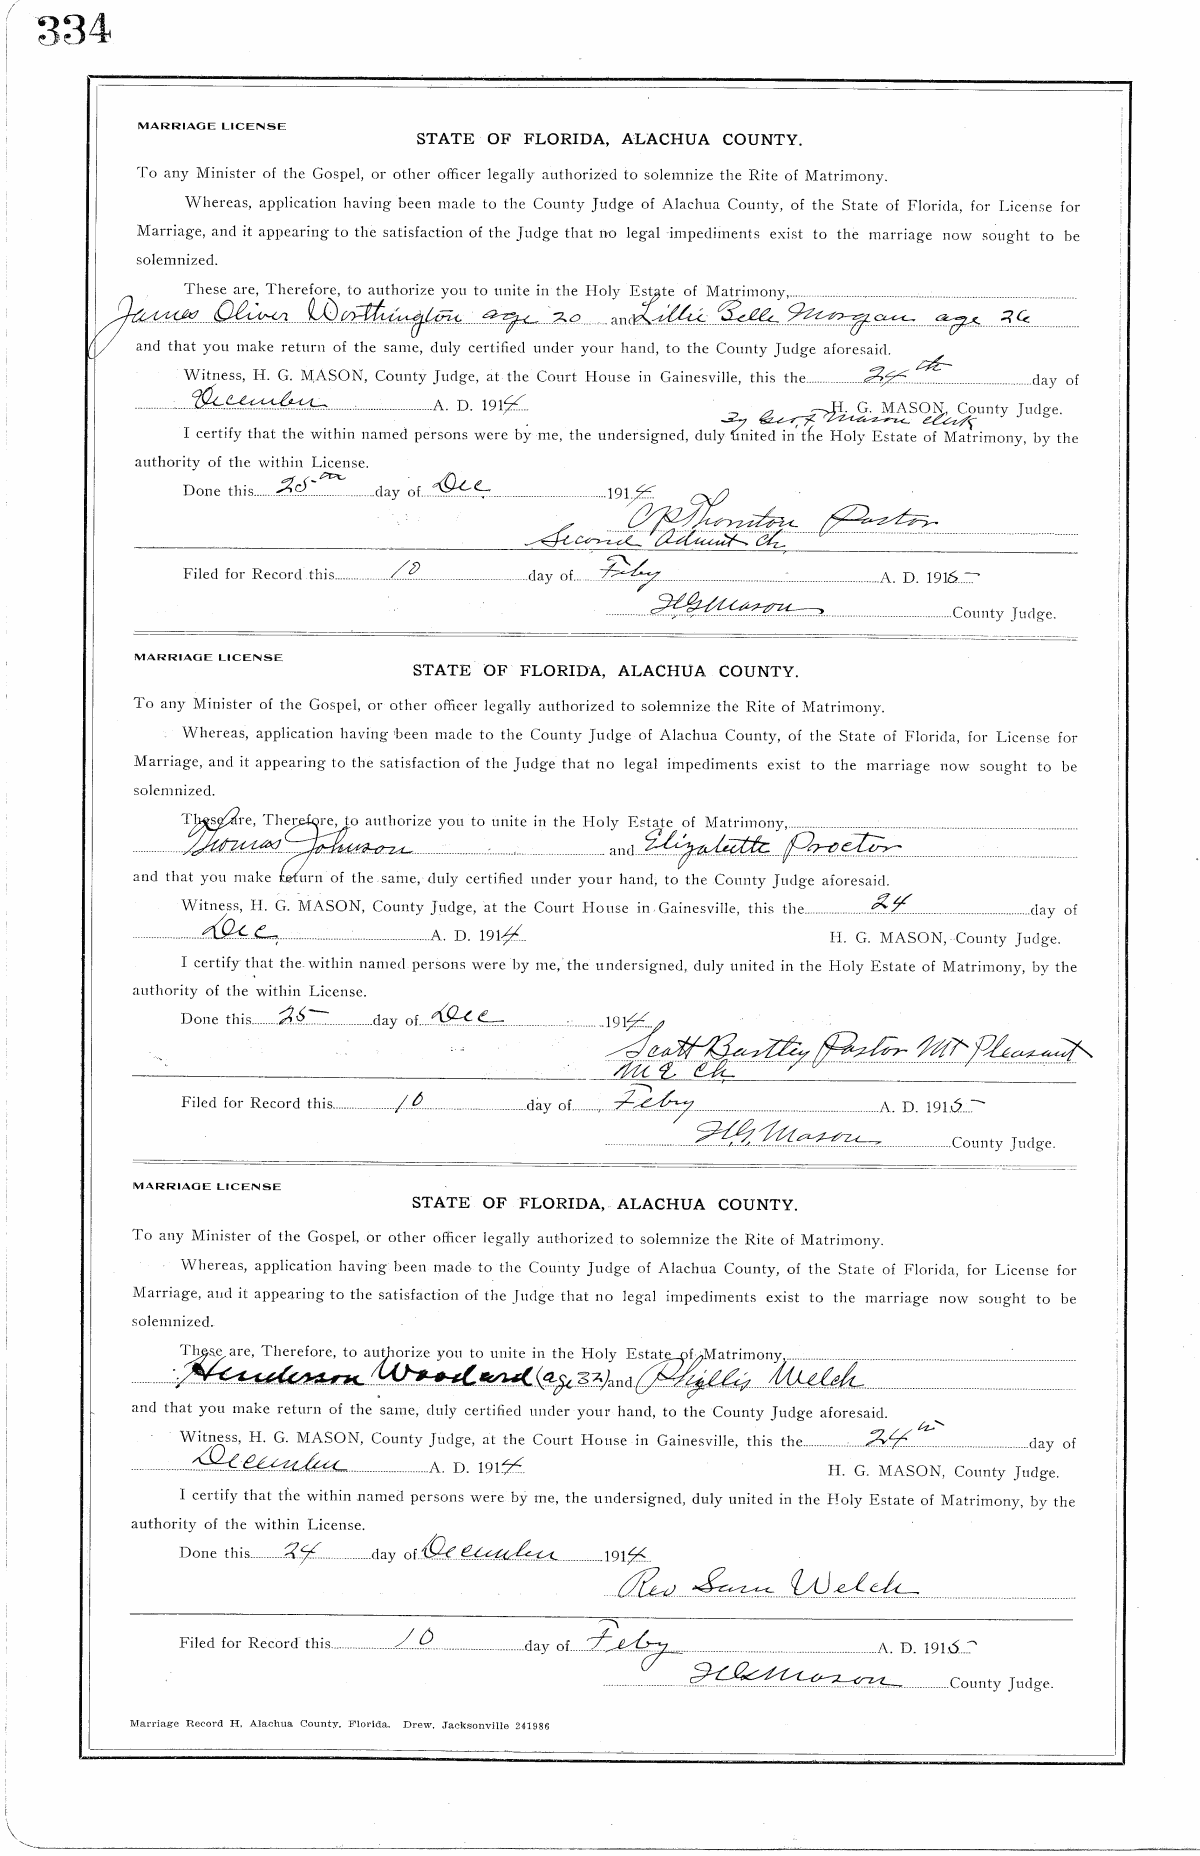 334
MARRIAGE LICENSE
STATE OF FLORIDA, ALACHUA COUNTY.
To any Minister of the Gospel, or other officer legally authorized to solemnize the Rite of Matrimony.
Whereas, application having been made to the County Judge of Alachua County, of the State of Florida, for License for
Marriage, and it appearing to the satisfaction of the Judge that no legal impediments exist to the marriage now sought to be
solemnized.
These are, Therefore, to authorize you to unite in the Holy Estate of Matrimony,
James Oliver Worthington age 20 and Lillie Belle Morgan age 26
and that you make return of the same, duly certified under your hand, to the County Judge aforesaid.
Witness, H. G. MASON, County Judge, at the Court House in Gainesville, this the 24th day of
December A. D. 1914 H. G. MASON, County Judge.
By Geo. F Mason clerk
I certify that the within named persons were by me, the undersigned, duly united in the Holy Estate of Matrimony, by the
authority of the within License.
Done this 25th day of Dec 1914
CP Thornton Pastor
Second Advent Ch.
Filed for Record this 10 day of Feby A. D. 1915
H G Mason County Judge.
MARRIAGE LICENSE
STATE OF FLORIDA, ALACHUA COUNTY.
To any Minister of the Gospel, or other officer legally authorized to solemnize the Rite of Matrimony.
Whereas, application having been made to the County Judge of Alachua County, of the State of Florida, for License for
Marriage, and it appearing to the satisfaction of the Judge that no legal impediments exist to the marriage now sought to be
solemnized.
These are, Therefore, to authorize you to unite in the Holy Estate of Matrimony,
Thomas Johnson and Elizabeth Proctor
and that you make return of the same, duly certified under your hand, to the County Judge aforesaid.
Witness, H. G. MASON, County Judge, at the Court House in Gainesville, this the 24 day of
Dec. A. D. 1914 H. G. MASON, County Judge.
I certify that the within named persons were by me, the undersigned, duly united in the Holy Estate of Matrimony, by the
authority of the within License.
Done this 25 day of Dec 1914
Scott Bartley Pastor Mt Pleasant
M E Ch.
Filed for Record this 10 day of Feby A. D. 1915
H G Mason County Judge.
MARRIAGE LICENSE
STATE OF FLORIDA, ALACHUA COUNTY.
To any Minister of the Gospel, or other officer legally authorized to solemnize the Rite of Matrimony.
Whereas, application having been made to the County Judge of Alachua County, of the State of Florida, for License for
Marriage, and it appearing to the satisfaction of the Judge that no legal impediments exist to the marriage now sought to be
solemnized.
These are, Therefore, to authorize you to unite in the Holy Estate of Matrimony,
Henderson Woodard (age 32) and Phyllis Welch
and that you make return of the same, duly certified under your hand, to the County Judge aforesaid.
Witness, H. G. MASON, County Judge, at the Court House in Gainesville, this the 24th day of
December A. D. 1914 H. G. MASON, County Judge.
I certify that the within named persons were by me, the undersigned, duly united in the Holy Estate of Matrimony, by the
authority of the within License.
Done this 24 day of December 1914
Rev Sam Welch
Filed for Record this 10 day of Feby A. D. 1915
H G Mason County Judge.
Marriage Record H, Alachua County, Florida. Drew, Jacksonville 241986